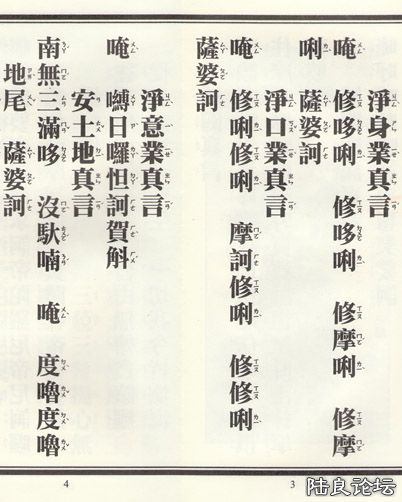 淨身業真言
唵　修哆唎　修哆唎　修摩唎　修摩
唎　薩婆訶
淨口業真言
唵　修唎修唎　摩訶修唎　修修唎
薩婆訶
3
淨意業真言
唵　嚩日囉怛訶賀斛
安土地真言
南無三滿哆　沒馱喃　唵　度嚕度嚕
地尾　薩婆訶
4
陆良论坛